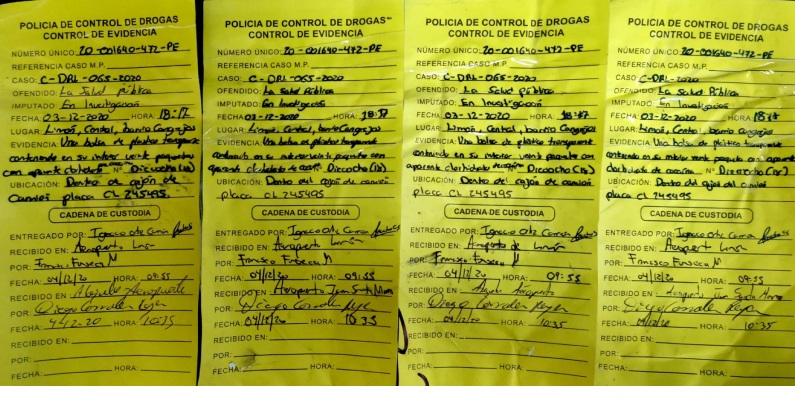 POLICIA DE CONTROL DE DROGAS
CONTROL DE EVIDENCIA
NÚMERO ÚNICO: 20-001640-472-PE
REFERENCIA CASO M.P.
CASO: C-DRL-065-2020
OFENDIDO: La Salud pública
IMPUTADO: En Investigación
FECHA: 03-12-2020 HORA: 18:17
LUGAR: Limón, Central, barrio Cangrejos
EVIDENCIA: Una bolsa de plástico transparente
conteniendo en su interior veinte paquetes
con aparente N° Dieciocho (18)
UBICACIÓN: Dentro de cajón de
camión placa CL 245495
CADENA DE CUSTODIA
ENTREGADO POR: Ignacio
RECIBIDO EN: Aeropuerto Limón
POR: Fonseca M
FECHA: 04/12/20 HORA: 09:55
RECIBIDO EN:
POR: Diego Corrales
FECHA: 4-12-20 HORA: 10:35
RECIBIDO EN:
POR:
FECHA: HORA:
POLICIA DE CONTROL DE DROGAS
CONTROL DE EVIDENCIA
NÚMERO ÚNICO: 20-001640-472-PE
REFERENCIA CASO M.P.
CASO: C-DRL-065-2020
OFENDIDO: La Salud Pública
IMPUTADO: En Investigación
FECHA: 03-12-2020 HORA: 18:17
LUGAR: Limón, Central, barrio Cangrejos
EVIDENCIA: Una bolsa de plástico transparente
conteniendo en su interior veinte paquetes con
aparente clorhidrato de N° Dieciocho (18)
UBICACIÓN: Dentro del cajón de camión
placa CL 245495
CADENA DE CUSTODIA
ENTREGADO POR: Ignacio
RECIBIDO EN: Aeropuerto Limón
POR: Francisco Fonseca M
FECHA: 04/12/20 HORA: 09:55
RECIBIDO EN: Aeropuerto
POR: Diego Corrales
FECHA: 04/12/20 HORA: 10:35
RECIBIDO EN:
POR:
FECHA: HORA:
POLICIA DE CONTROL DE DROGAS
CONTROL DE EVIDENCIA
NÚMERO ÚNICO: 20-001640-472-PE
REFERENCIA CASO M.P.
CASO: C-DRL-065-2020
OFENDIDO: La Salud Pública
IMPUTADO: En Investigación
FECHA: 03-12-2020 HORA: 18:17
LUGAR: Limón, Central, barrio Cangrejos
EVIDENCIA: Una bolsa de plástico transparente
conteniendo en su interior veinte paquetes con
aparente clorhidrato de N° Dieciocho (18)
UBICACIÓN: Dentro del cajón de camión
placa CL 245495
CADENA DE CUSTODIA
ENTREGADO POR: Ignacio
RECIBIDO EN: Aeropuerto de Limón
POR: Francisco Fonseca M
FECHA: 04/12/20 HORA: 09:55
RECIBIDO EN: Aeropuerto
POR: Diego Corrales
FECHA: 04/12/20 HORA: 10:35
RECIBIDO EN:
POR:
FECHA: HORA:
POLICIA DE CONTROL DE DROGAS
CONTROL DE EVIDENCIA
NÚMERO ÚNICO: 20-001640-472-PE
REFERENCIA CASO M.P.
CASO: C-DRL-065-2020
OFENDIDO: La Salud Pública
IMPUTADO: En Investigación
FECHA: 03-12-2020 HORA: 18:17
LUGAR: Limón, Central, barrio Cangrejos
EVIDENCIA: Una bolsa de plástico transparente
conteniendo en su interior veinte paquetes con aparente
clorhidrato de cocaína N° Dieciocho (18)
UBICACIÓN: Dentro del cajón del camión
placa CL 245495
CADENA DE CUSTODIA
ENTREGADO POR: Ignacio
RECIBIDO EN: Aeropuerto Limón
POR: Francisco Fonseca M
FECHA: 04/12/20 HORA: 09:55
RECIBIDO EN:
POR: Diego Corrales
FECHA: 04/12/20 HORA: 10:35
RECIBIDO EN:
POR:
FECHA: HORA: